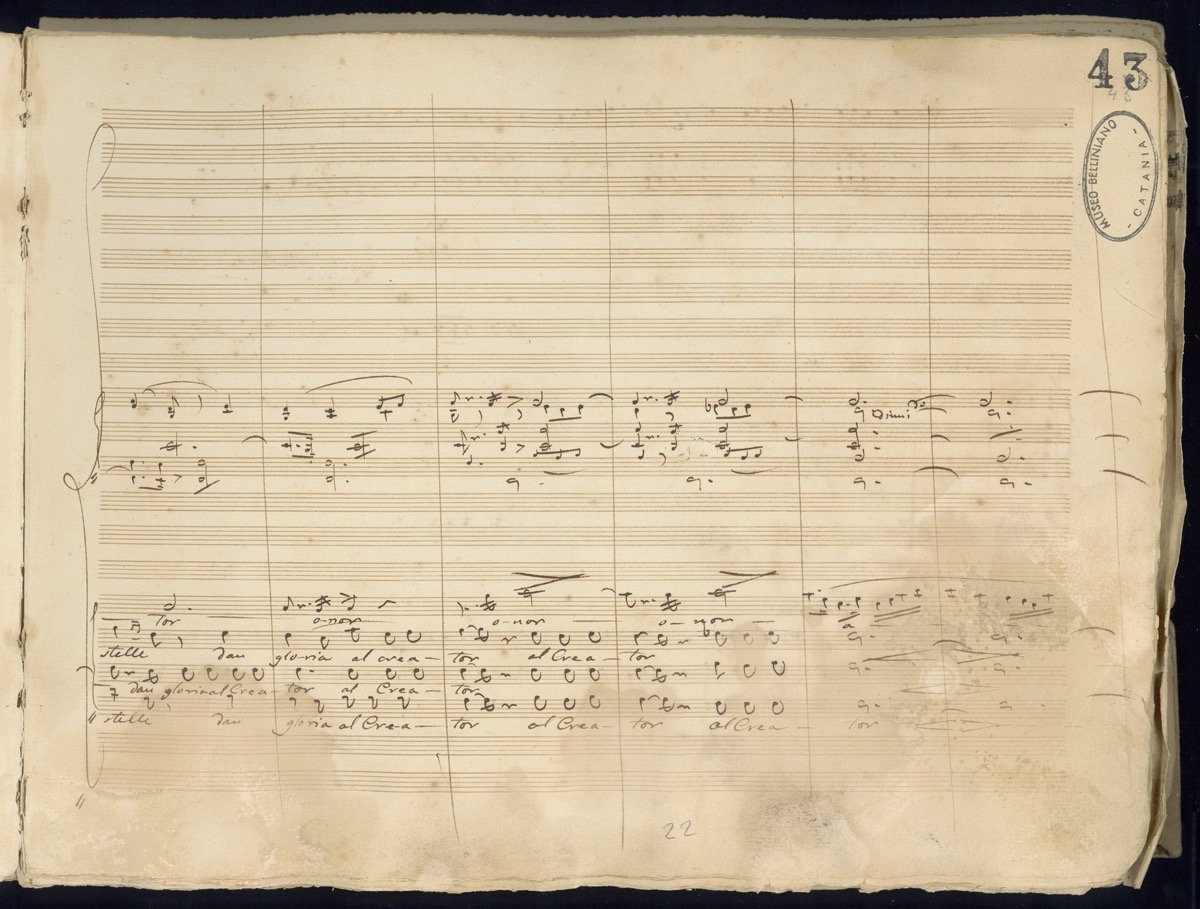 43
MUSEO BELLINIANO
- CATANIA -
Dimi
tor o-nor o-nor o-nor
stelle dan gloria al crea- tor al Crea- tor
dan gloria al Crea- tor al Crea- tor
stelle dan gloria al Crea- tor al Crea- tor al Crea- tor
22